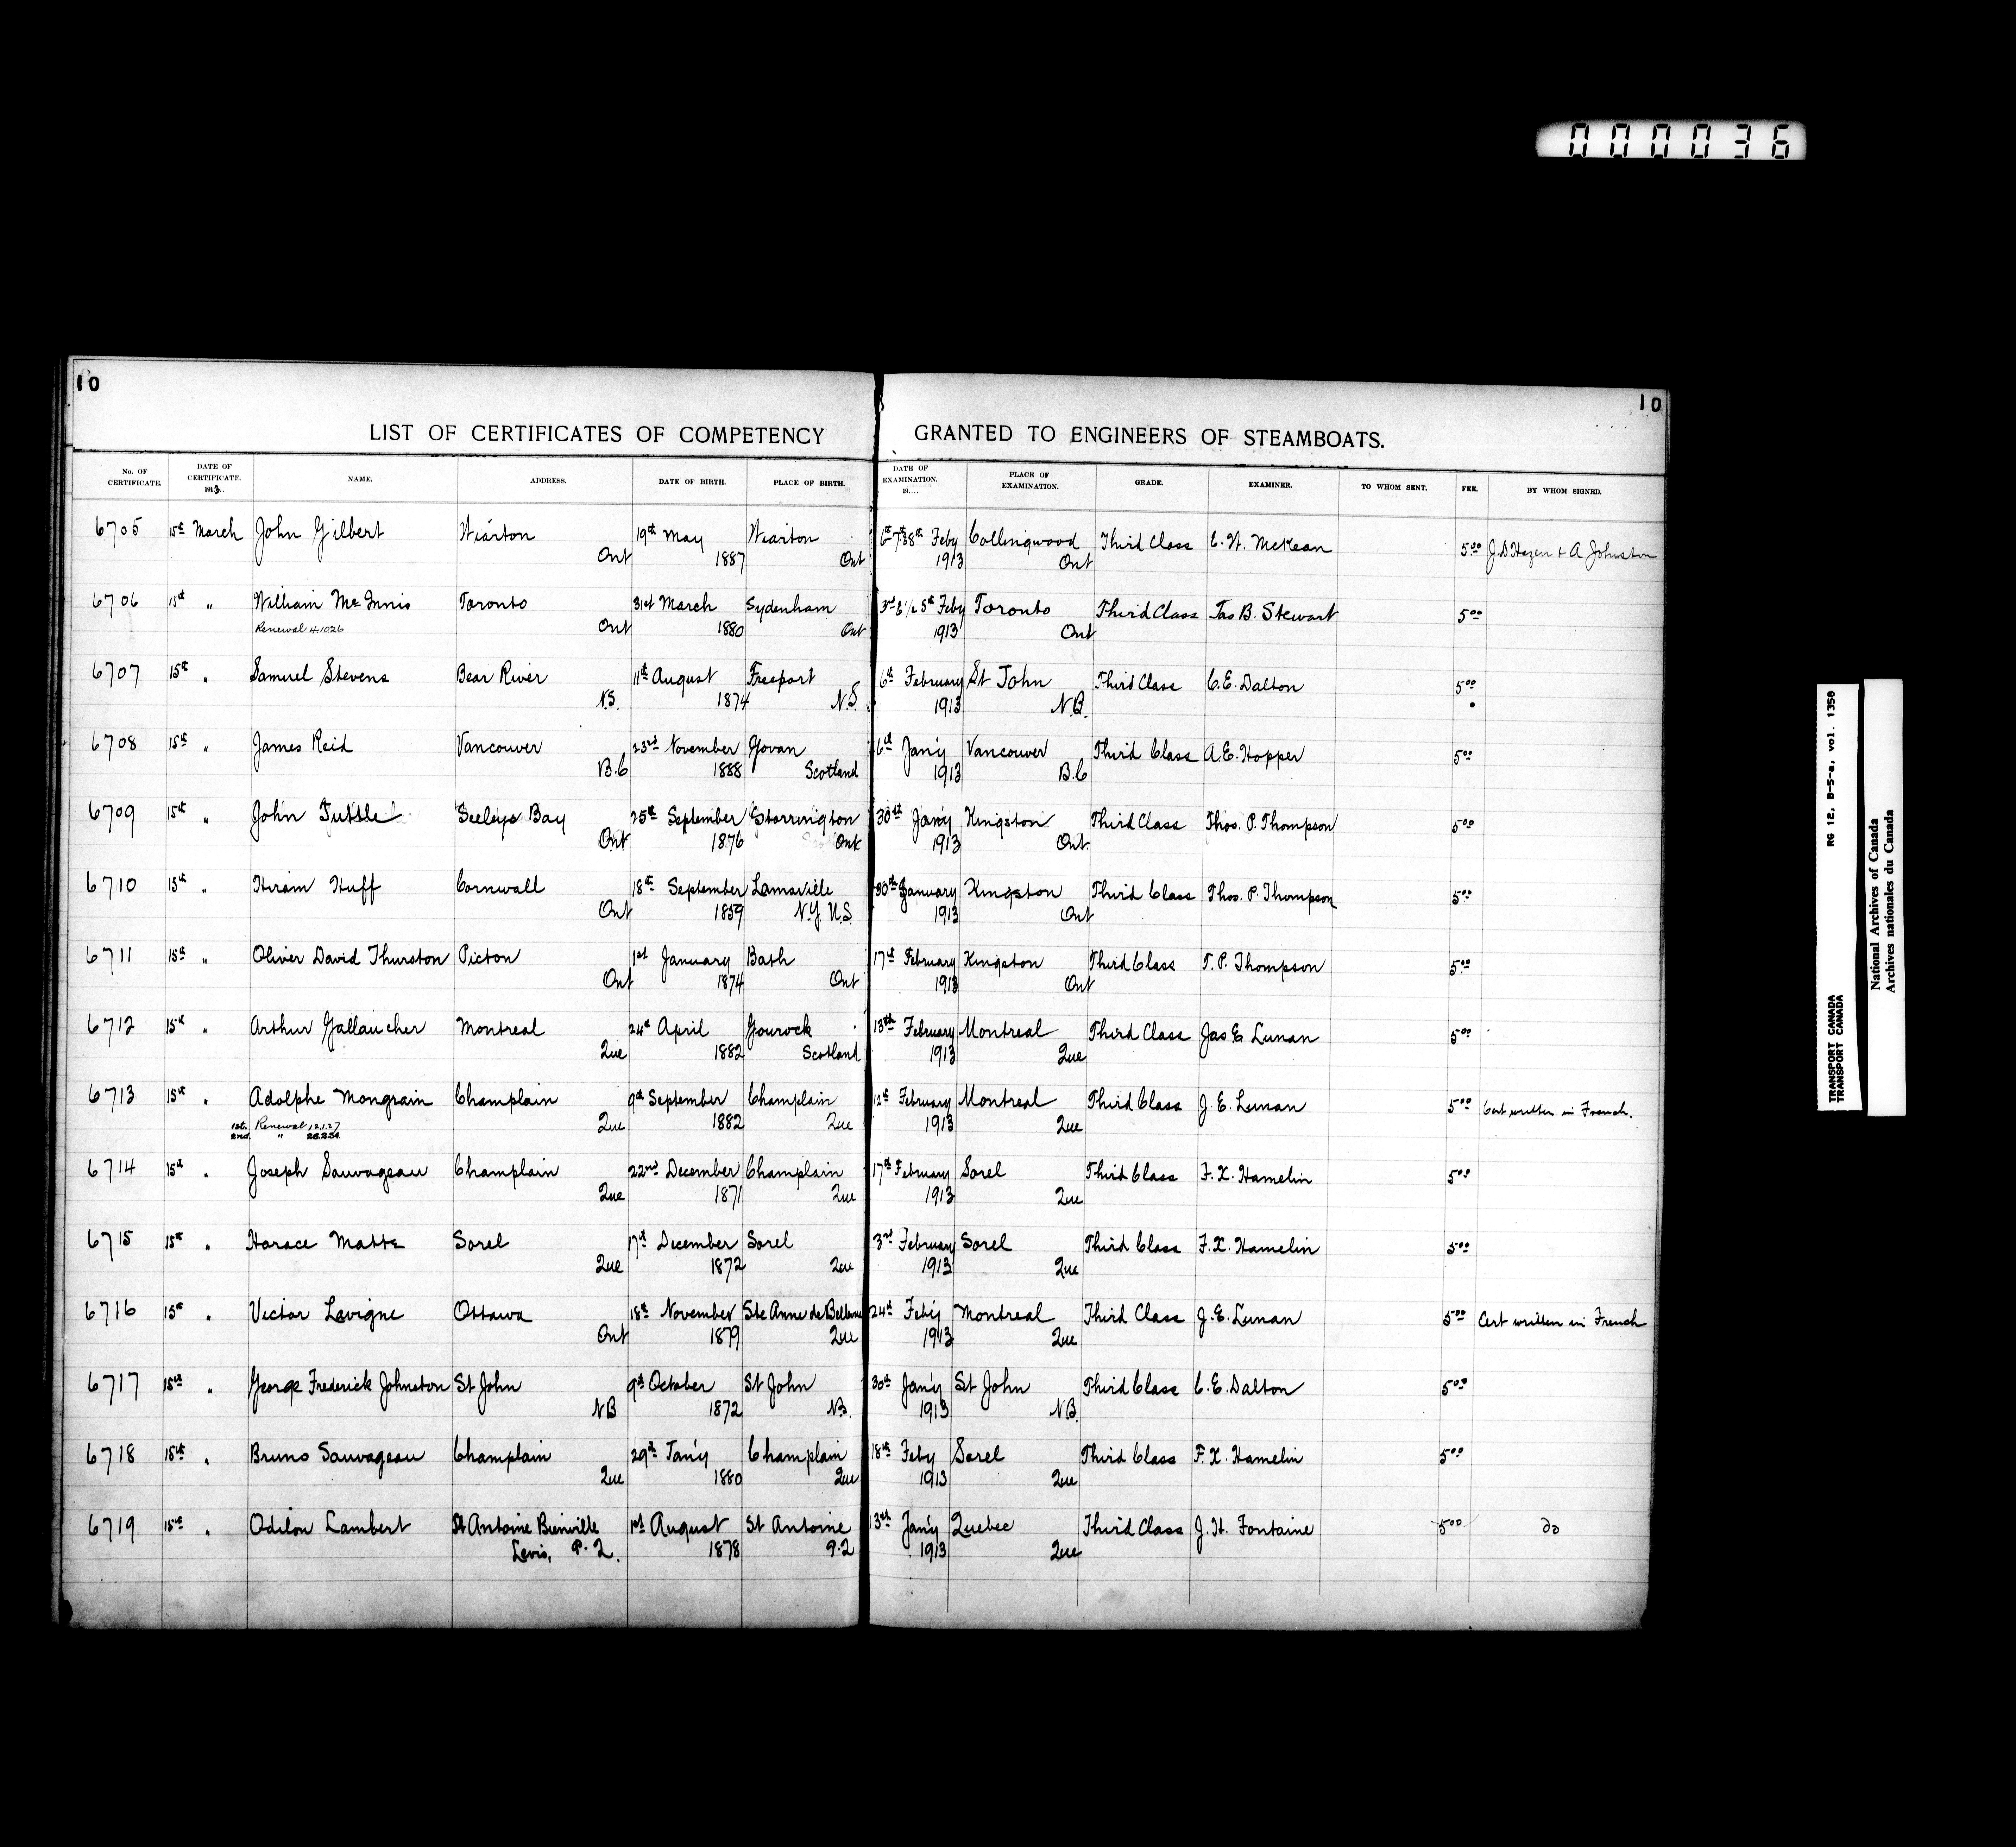 000036
10 10
LIST OF CERTIFICATES OF COMPETENCY GRANTED TO ENGINEERS OF STEAMBOATS.
No. OF CERTIFICATE. DATE OF CERTIFICATE. 1913.. NAME. ADDRESS. DATE OF BIRTH. PLACE OF BIRTH. DATE OF EXAMINATION. 19.... PLACE OF EXAMINATION. GRADE. EXAMINER. TO WHOM SENT. FEE. BY WHOM SIGNED.
6705 15th March John Gilbert Wiarton 19th May Wiarton 6th 7th & 8th Feby Collingwood Third Class C. W. McKean 5.00 J. D Hazen & A Johnston
Ont 1887 Ont 1913 Ont
6706 15th " William McInnis Toronto 31st March Sydenham 3rd & 5th Feby Toronto Third Class Jas B. Stewart 5.00
Renewal 4.10.26 Ont 1880 Ont 1913 Ont
6707 15th " Samuel Stevens Bear River 11th August Freeport 6th February St John Third Class C. E. Dalton 5.00
N.S. 1874 N.S. 1913 N.B.
6708 15th " James Reid Vancouver 23rd November Govan 6th Jan'y Vancouver Third Class A. E. Hopper 5.00
B.C 1888 Scotland 1913 B.C
6709 15th " John Tuttle Seeleys Bay 25th September Storrington 30th Jan'y Kingston Third Class Thos. P. Thompson 5.00
Ont 1876 Ont 1913 Ont.
6710 15th " Hiram Huff Cornwall 18th September Lamsville 30th January Kingston Third Class Thos. P. Thompson 5.00
Ont 1859 N.Y. U.S. 1913 Ont
6711 15th " Oliver David Thurston Picton 1st January Bath 17th February Kingston Third Class T. P. Thompson 5.00
Ont 1874 Ont 1913 Ont
6712 15th " Arthur Gallaucher Montreal 24th April Gourock 13th February Montreal Third Class Jas E Lunan 5.00
Que 1882 Scotland 1913 Que
6713 15th " Adolphe Mongrain Champlain 9th September Champlain 12th February Montreal Third Class J. E. Lunan 5.00 Cert written in French.
1st. Renewal 12.1.27 Que 1882 Que 1913 Que
2nd. "
6714 15th " Joseph Sauvageau Champlain 22nd December Champlain 17th February Sorel Third Class F. X. Hamelin 5.00
Que 1871 Que 1913 Que
6715 15th " Horace Matte Sorel 17th December Sorel 3rd February Sorel Third Class F. X. Hamelin 5.00
Que 1872 Que 1913 Que
6716 15th " Victor Lavigne Ottawa 18th November Ste Anne de Bellevue 24th Feb'y Montreal Third Class J. E. Lunan 5.00 Cert written in French
Ont 1879 Que 1913 Que
6717 15th " George Frederick Johnston St John 9th October St John 30th Jan'y St John Third Class C. E. Dalton 5.00
NB 1872 N.B. 1913 N.B.
6718 15th " Bruno Sauvageau Champlain 29th Jan'y Champlain 18th Feby Sorel Third Class F. X. Hamelin 5.00
Que 1880 Que 1913 Que
6719 15th " Odilon Lambert St Antoine Bienville 1st August St Antoine 13th Jan'y Quebec Third Class J. H. Fontaine 5.00 do
Levis, P.Q. 1878 P.Q 1913 Que
TRANSPORT CANADA RG 12, B-5-a, vol. 1358
TRANSPORT CANADA
National Archives of Canada
Archives nationales du Canada